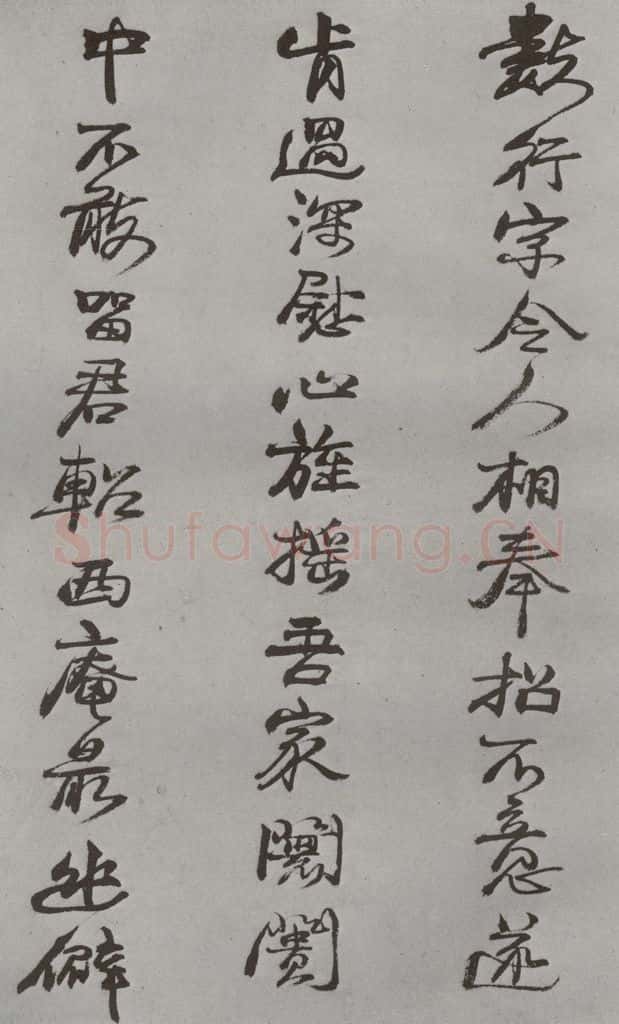 數行字令人相奉招不意遂
肯過深慰心旌搖吾家闤闠
中不敢留君軺西庵最幽僻
Shufawang.CN